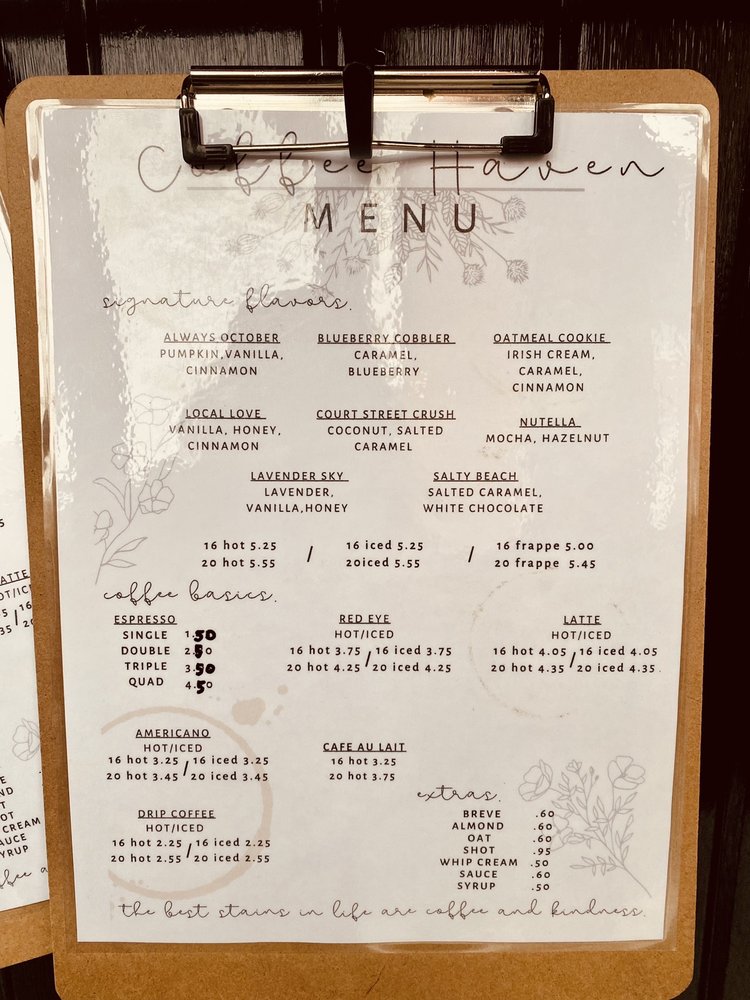 Coffee Haven
MENU
signature flavors.
ALWAYS OCTOBER
PUMPKIN,VANILLA,
CINNAMON
BLUEBERRY COBBLER
CARAMEL,
BLUEBERRY
OATMEAL COOKIE
IRISH CREAM,
CARAMEL,
CINNAMON
LOCAL LOVE
VANILLA, HONEY,
CINNAMON
COURT STREET CRUSH
COCONUT, SALTED
CARAMEL
NUTELLA
MOCHA, HAZELNUT
LAVENDER SKY
LAVENDER,
VANILLA,HONEY
SALTY BEACH
SALTED CARAMEL,
WHITE CHOCOLATE
16 hot 5.25 / 16 iced 5.25 / 16 frappe 5.00
20 hot 5.55 20iced 5.55 20 frappe 5.45
coffee basics.
ESPRESSO
SINGLE 1.50
DOUBLE 2.50
TRIPLE 3.50
QUAD 4.50
RED EYE
HOT/ICED
16 hot 3.75 / 16 iced 3.75
20 hot 4.25 20 iced 4.25
LATTE
HOT/ICED
16 hot 4.05 / 16 iced 4.05
20 hot 4.35 20 iced 4.35
AMERICANO
HOT/ICED
16 hot 3.25 / 16 iced 3.25
20 hot 3.45 20 iced 3.45
CAFE AU LAIT
16 hot 3.25
20 hot 3.75
DRIP COFFEE
HOT/ICED
16 hot 2.25 / 16 iced 2.25
20 hot 2.55 20 iced 2.55
extras.
BREVE .60
ALMOND .60
OAT .60
SHOT .95
WHIP CREAM .50
SAUCE .60
SYRUP .50
the best stains in life are coffee and kindness.